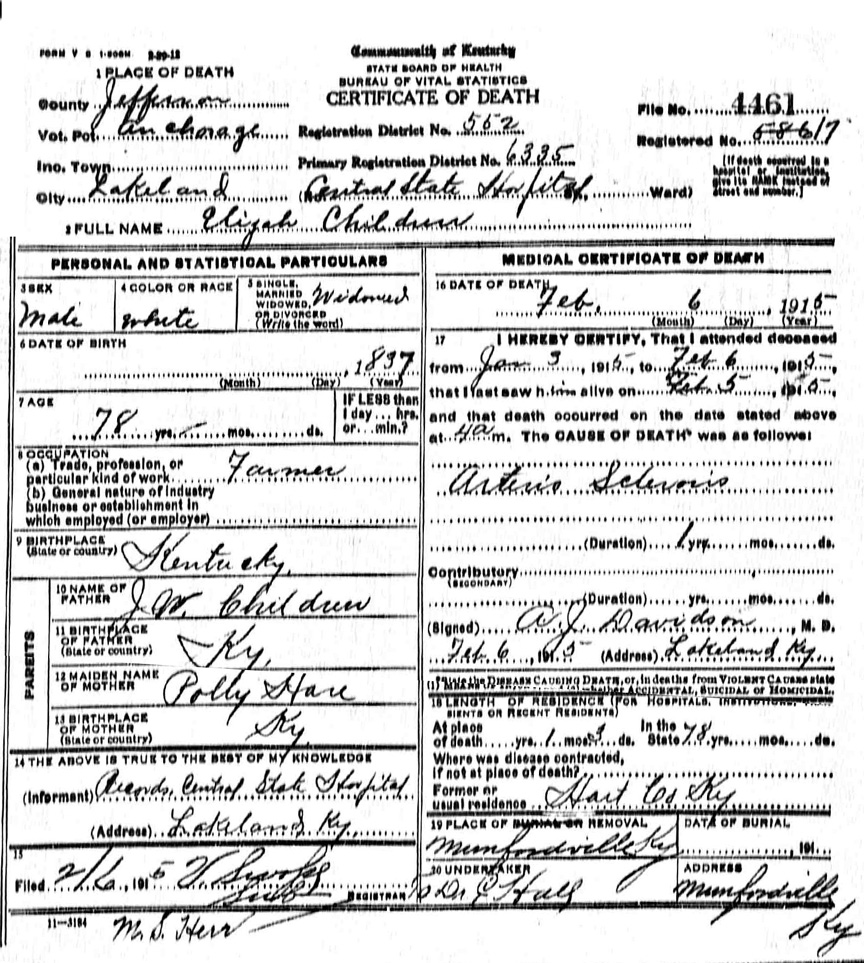 FORM V S 1-500M 3-20-12
Commonwealth of Kentucky
STATE BOARD OF HEALTH
BUREAU OF VITAL STATISTICS
CERTIFICATE OF DEATH
1 PLACE OF DEATH
County Jefferson
Vot. Pct Anchorage
Registration District No. 552
File No. 4461
Ino. Town
Primary Registration District No. 6335
Registered No.
City Lakeland
(No. Central State Hospital St. Ward)
[If death occurred in a hospital or institution, give its NAME instead of street and number.]
2 FULL NAME Elijah Children
PERSONAL AND STATISTICAL PARTICULARS
3 SEX Male
4 COLOR OR RACE white
5 SINGLE, MARRIED WIDOWED, OR DIVORCED (Write the word) Widowed
6 DATE OF BIRTH
, 1837
(Month) (Day) (Year)
7 AGE
78 yrs. — mos. ds.
IF LESS than 1 day... hrs. or... min.?
8 OCCUPATION
(a) Trade, profession, or particular kind of work Farmer
(b) General nature of industry
business or establishment in
which employed (or employer)
9 BIRTHPLACE
(State or country) Kentucky.
PARENTS
10 NAME OF FATHER J. W. Children
11 BIRTHPLACE OF FATHER (State or country) Ky.
12 MAIDEN NAME OF MOTHER Polly Hare
13 BIRTHPLACE OF MOTHER (State or country) Ky.
14 THE ABOVE IS TRUE TO THE BEST OF MY KNOWLEDGE
(Informant) Records, Central State Hospital
(Address) Lakeland Ky.
15
Filed 2/6, 1915
REGISTRAR
11—3184
M. S. Herr
MEDICAL CERTIFICATE OF DEATH
16 DATE OF DEATH
Feb. 6, 1915
(Month) (Day) (Year)
17 I HEREBY CERTIFY, That I attended deceased
from Jan 3, 1915, to Feb 6, 1915,
that I last saw him alive on Feb 5, 1915,
and that death occurred on the date stated above
at 4a m. The CAUSE OF DEATH* was as follows:
Arterio Sclerosis
(Duration) 1 yrs. mos. ds.
Contributory
(SECONDARY)
(Duration) yrs. mos. ds.
(Signed) A. J. Davidson, M. D.
Feb. 6, 1915 (Address) Lakeland Ky
the DISEASE CAUSING DEATH, or, in deaths from VIOLENT CAUSES state
(1) MEANS OF INJURY; whether ACCIDENTAL, SUICIDAL or HOMICIDAL.
18 LENGTH OF RESIDENCE (FOR HOSPITALS, INSTITUTIONS,
SIENTS OR RECENT RESIDENTS)
At place of death yrs. 1 mos. 3 ds. In the State 78 yrs. mos. ds.
Where was disease contracted,
If not at place of death?
Former or usual residence Hart Co Ky
19 PLACE OF BURIAL OR REMOVAL
Munfordville Ky
DATE OF BURIAL
, 191
20 UNDERTAKER
Hall
ADDRESS
Munfordville
Ky